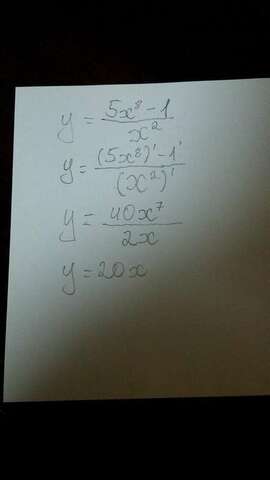 y = (5x⁸ - 1)/x²
y = ((5x⁸)' - 1')/(x²)'
y = 40x⁷/2x
y = 20x